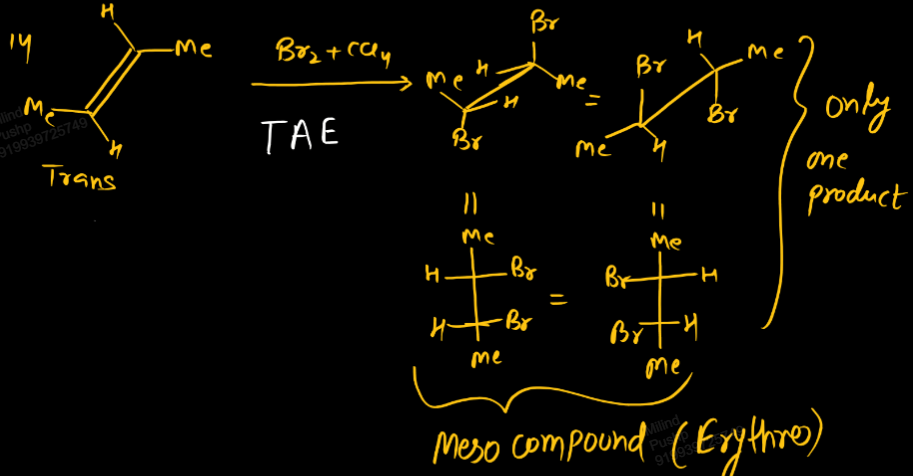 14
H
Me
Me
H
Trans
Br2 + CCl4
TAE
Br
H
Me
Me
H
Br
=
Br
H
Me
Br
Me
H
only
one
product
=
Me
H Br
H Br
Me
=
=
Me
Br H
Br H
Me
Meso compound (Erythreo)
Milind
Pushp
919939725749
Milind
Pushp